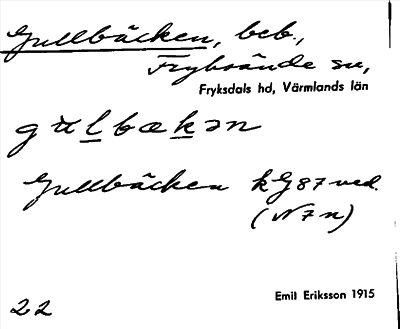 Gullbäcken, beb.,
Fryksände sn,
Fryksdals hd, Värmlands län
gulbækən
Gullbäcken kG87 ved.
(N7n)
22
Emil Eriksson 1915